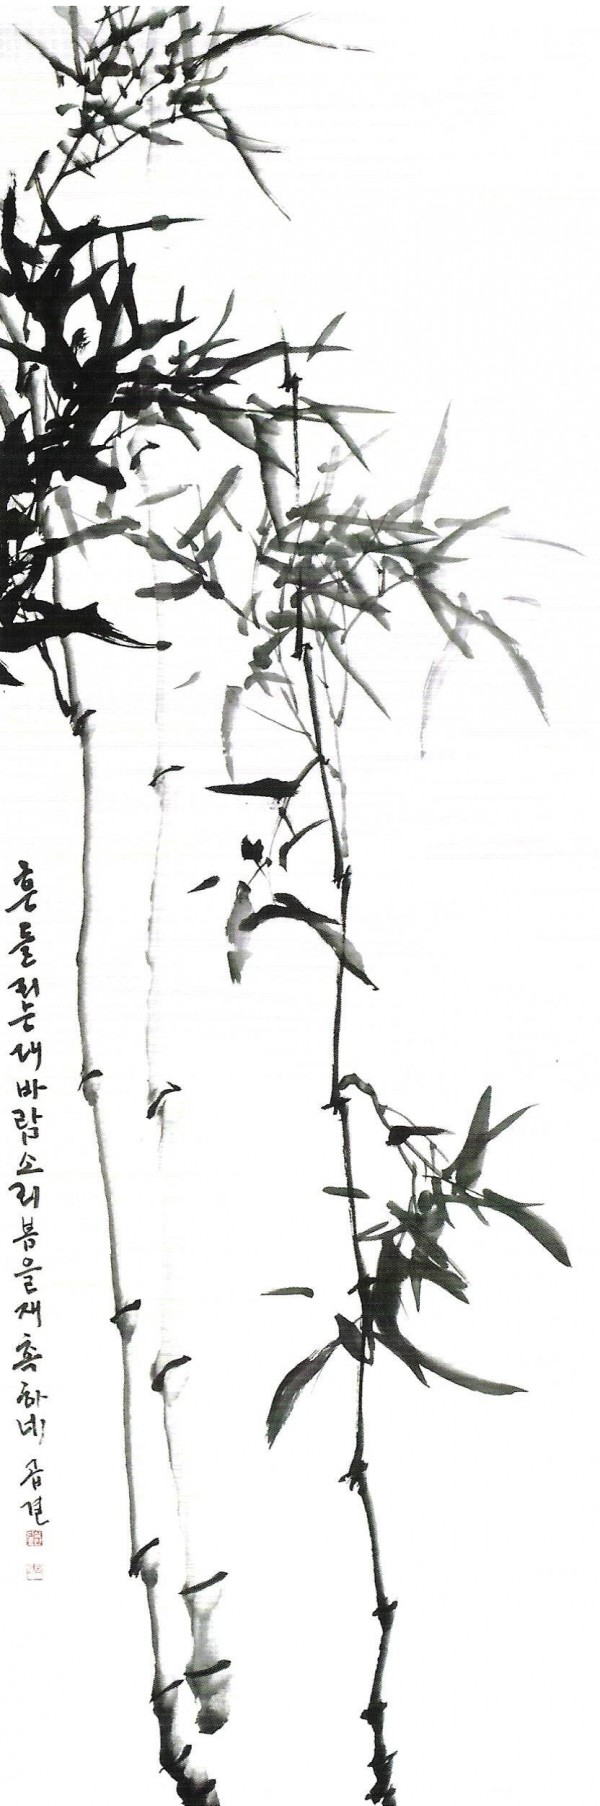 흔들리는대바람소리봄을재촉하네 곱결